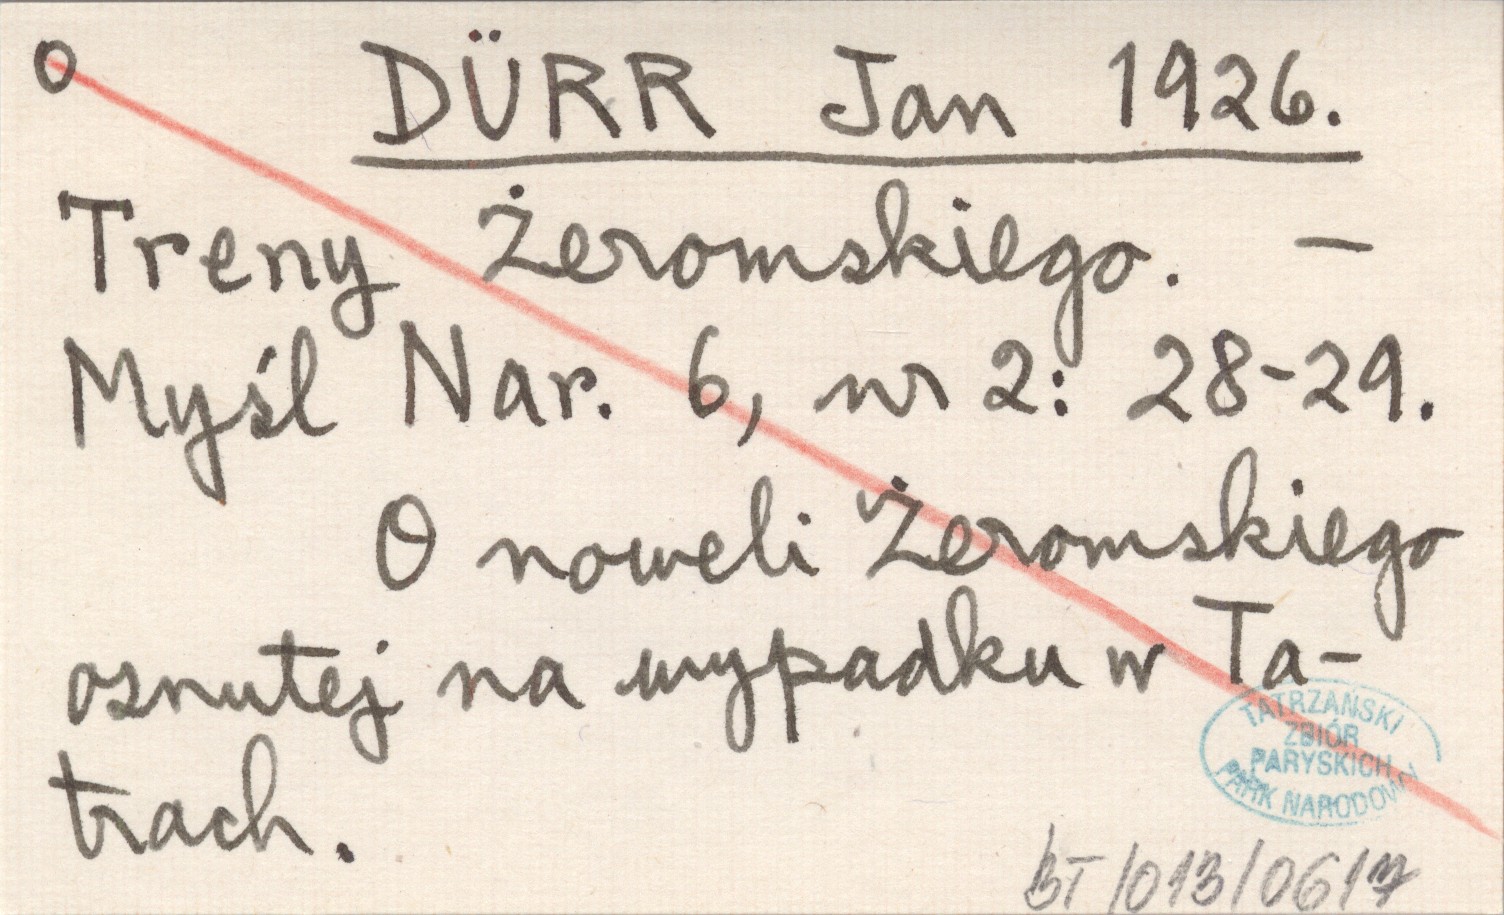 O DÜRR Jan 1926.
Treny Żeromskiego. —
Myśl Nar. 6, nr 2: 28-29.
O noweli Żeromskiego
osnutej na wypadku w Ta-
trach.
TATRZAŃSKI
ZBIÓR
PARYSKICH
PARK NARODOWY
BT/013/0617